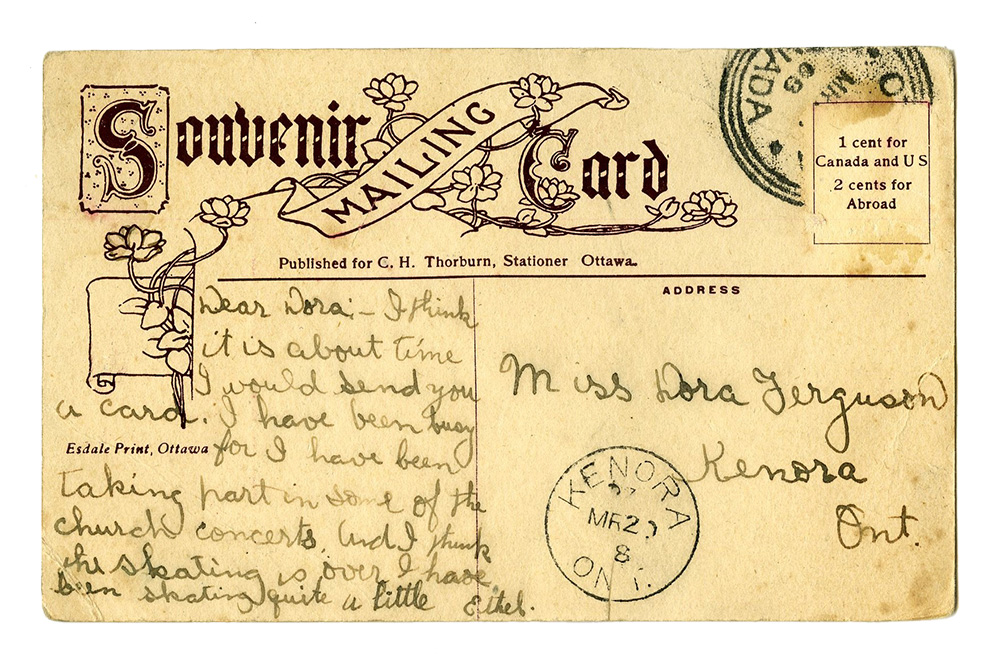 Souvenir MAILING Card
Published for C. H. Thorburn, Stationer Ottawa.
1 cent for
Canada and U S
2 cents for
Abroad
NADA
MR
09
O
Esdale Print, Ottawa
Dear Dora; - I think
it is about time
I would send you
a card. I have been busy
for I have been
taking part in some of the
church concerts. And I think
the skating is over I have
been skating quite a little Ethel.
ADDRESS
Miss Dora Ferguson
Kenora
Ont.
KENORA
MR20
ONT.